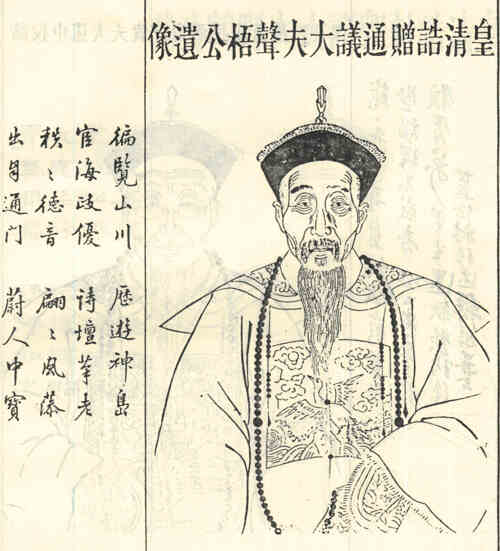 皇清誥贈通議大夫聲梧公遺像
徧覽山川 歷遊神島
宦海政優 詩壇老
秩〻德音 翩〻風藻
出自通門 蔚人中寶